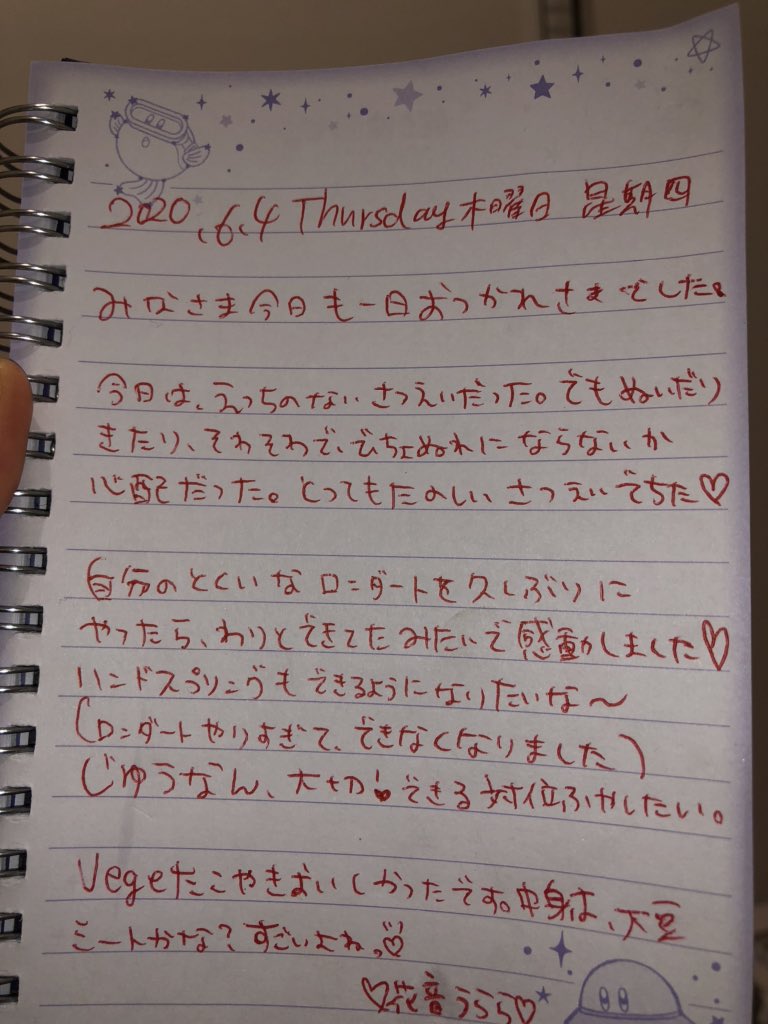 2020.6.4 Thursday 木曜日 星期四
みなさま今日も一日おつかれさまでした。
今日は、えっちのないさつえいだった。でもぬいだり
きたり、そわそわで、でちょぬれにならないか
心配だった。とってもたのしいさつえいでちた♡
自分のとくいなロンダートを久しぶりに
やったら、わりとできてたみたいで感動しました♡
ハンドスプリングもできるようになりたいな〜
(ロンダートやりすぎて、できなくなりました)
じゅうなん、大切!できる対位ふやしたい。
Vegeたこやきおいしかったです。中身は、大豆
ミートかな?すごいよね。♡
♡花音うらら♡